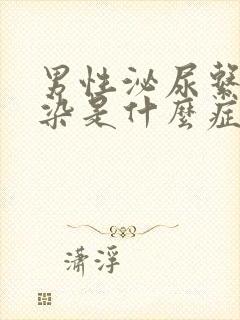 男性泌尿繫
染是什麼症
瀟浮